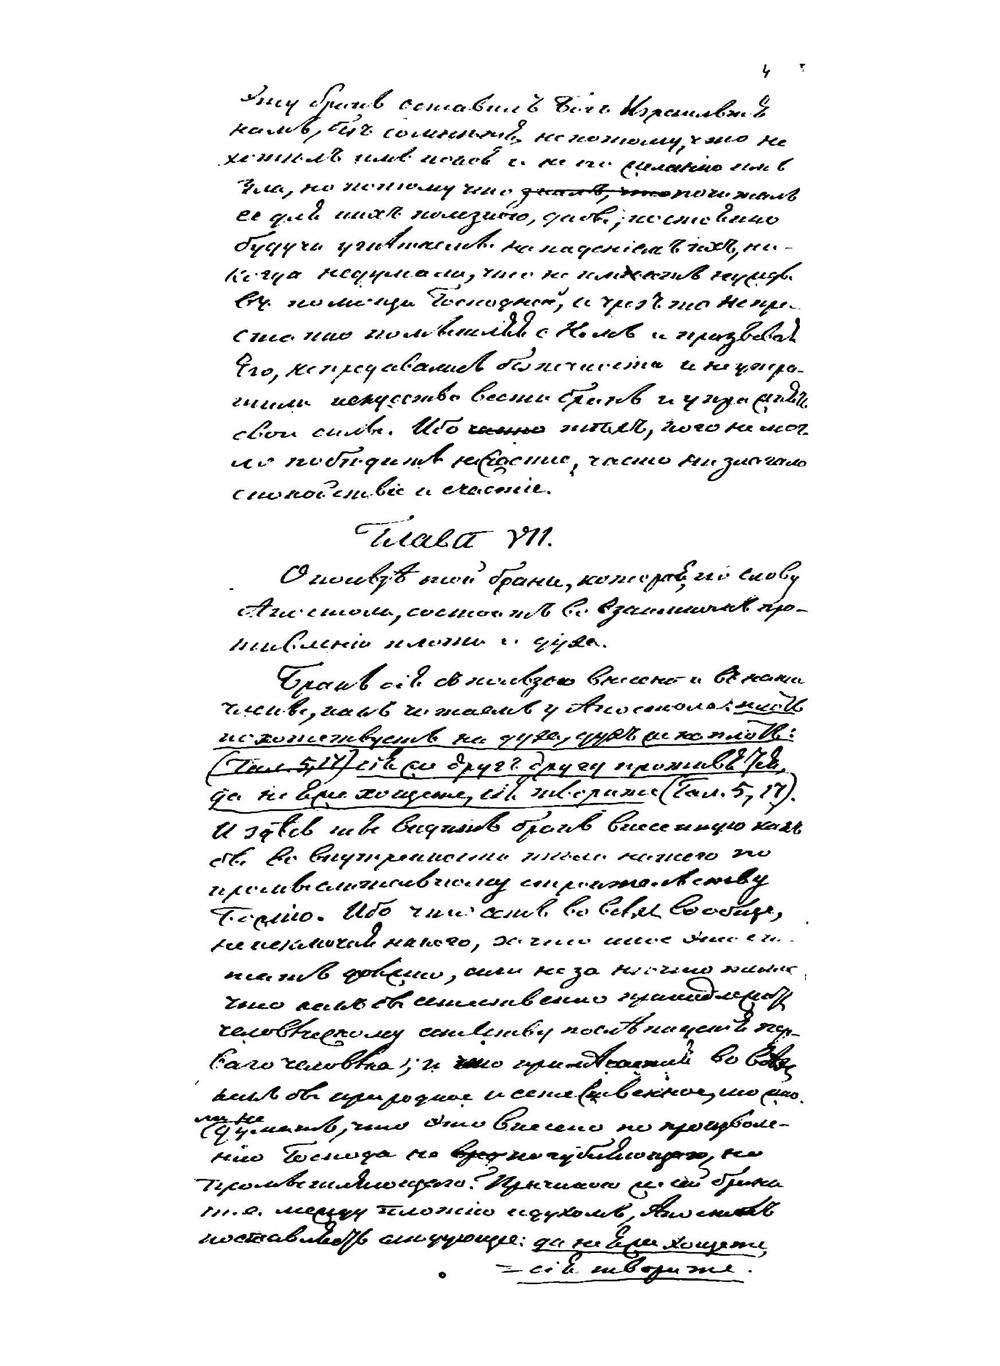 4
Эту брань оставилъ Богъ Израильтя-
намъ, безъ сомнѣнія, не потому, что не
хотѣлъ имъ покоя и не по желанію имъ
Зла, но потому что, зналъ, что почиталъ
ее для нихъ полезною, дабы, постоянно
будучи угнѣтаемы нападеніемъ ихъ, ни-
когда не думали, что не имѣютъ нужды
въ помощи Господней, и чрезъ то непре-
станно помышляя о Немъ и призывая
Его, не предавались безпечности и не утра-
тили искусства вести брань и упражнять
свои силы. Ибо часто тѣхъ, кого не мог-
ло побѣдить несчастіе, часто низлагало
спокойствіе и счастіе.
Глава VII.
О пользѣ той брани, которая, по слову
Апостола, состоитъ во взаимномъ про-
тивленіи плоти и духа.
Брань сія съ пользою внесена и въ наши
члены, какъ читаемъ у Апостола: плоть
похотствуетъ на духа, духъ же на плоть:
(Гал. 5, 17) сія же другъ другу противятся,
да не яже хощете, сія творите (Гал. 5, 17).
И здѣсь ты видишь брань внесенную какъ
бы во внутренности тѣла нашего по
промыслительному строительству
Божію. Ибо что есть во всѣхъ вообще,
не исключая никого, за что иное это счи-
тать должно, или не за нѣчто такое
что какъ бы естественно принадлежитъ
человѣческому естеству послѣ паденія пер-
ваго человѣка; и что примѣчаемъ во всѣхъ
какъ бы природное и естественное, то мо-
жно ли не
думать, что это внесено по произволе-
нію Господа не вре не губящаго, но
промышляющаго? Причиною же сей брани
т.е. между плотію и духомъ, Апостолъ
поставляетъ слѣдующее: да не яже хощете,
= сія творите.